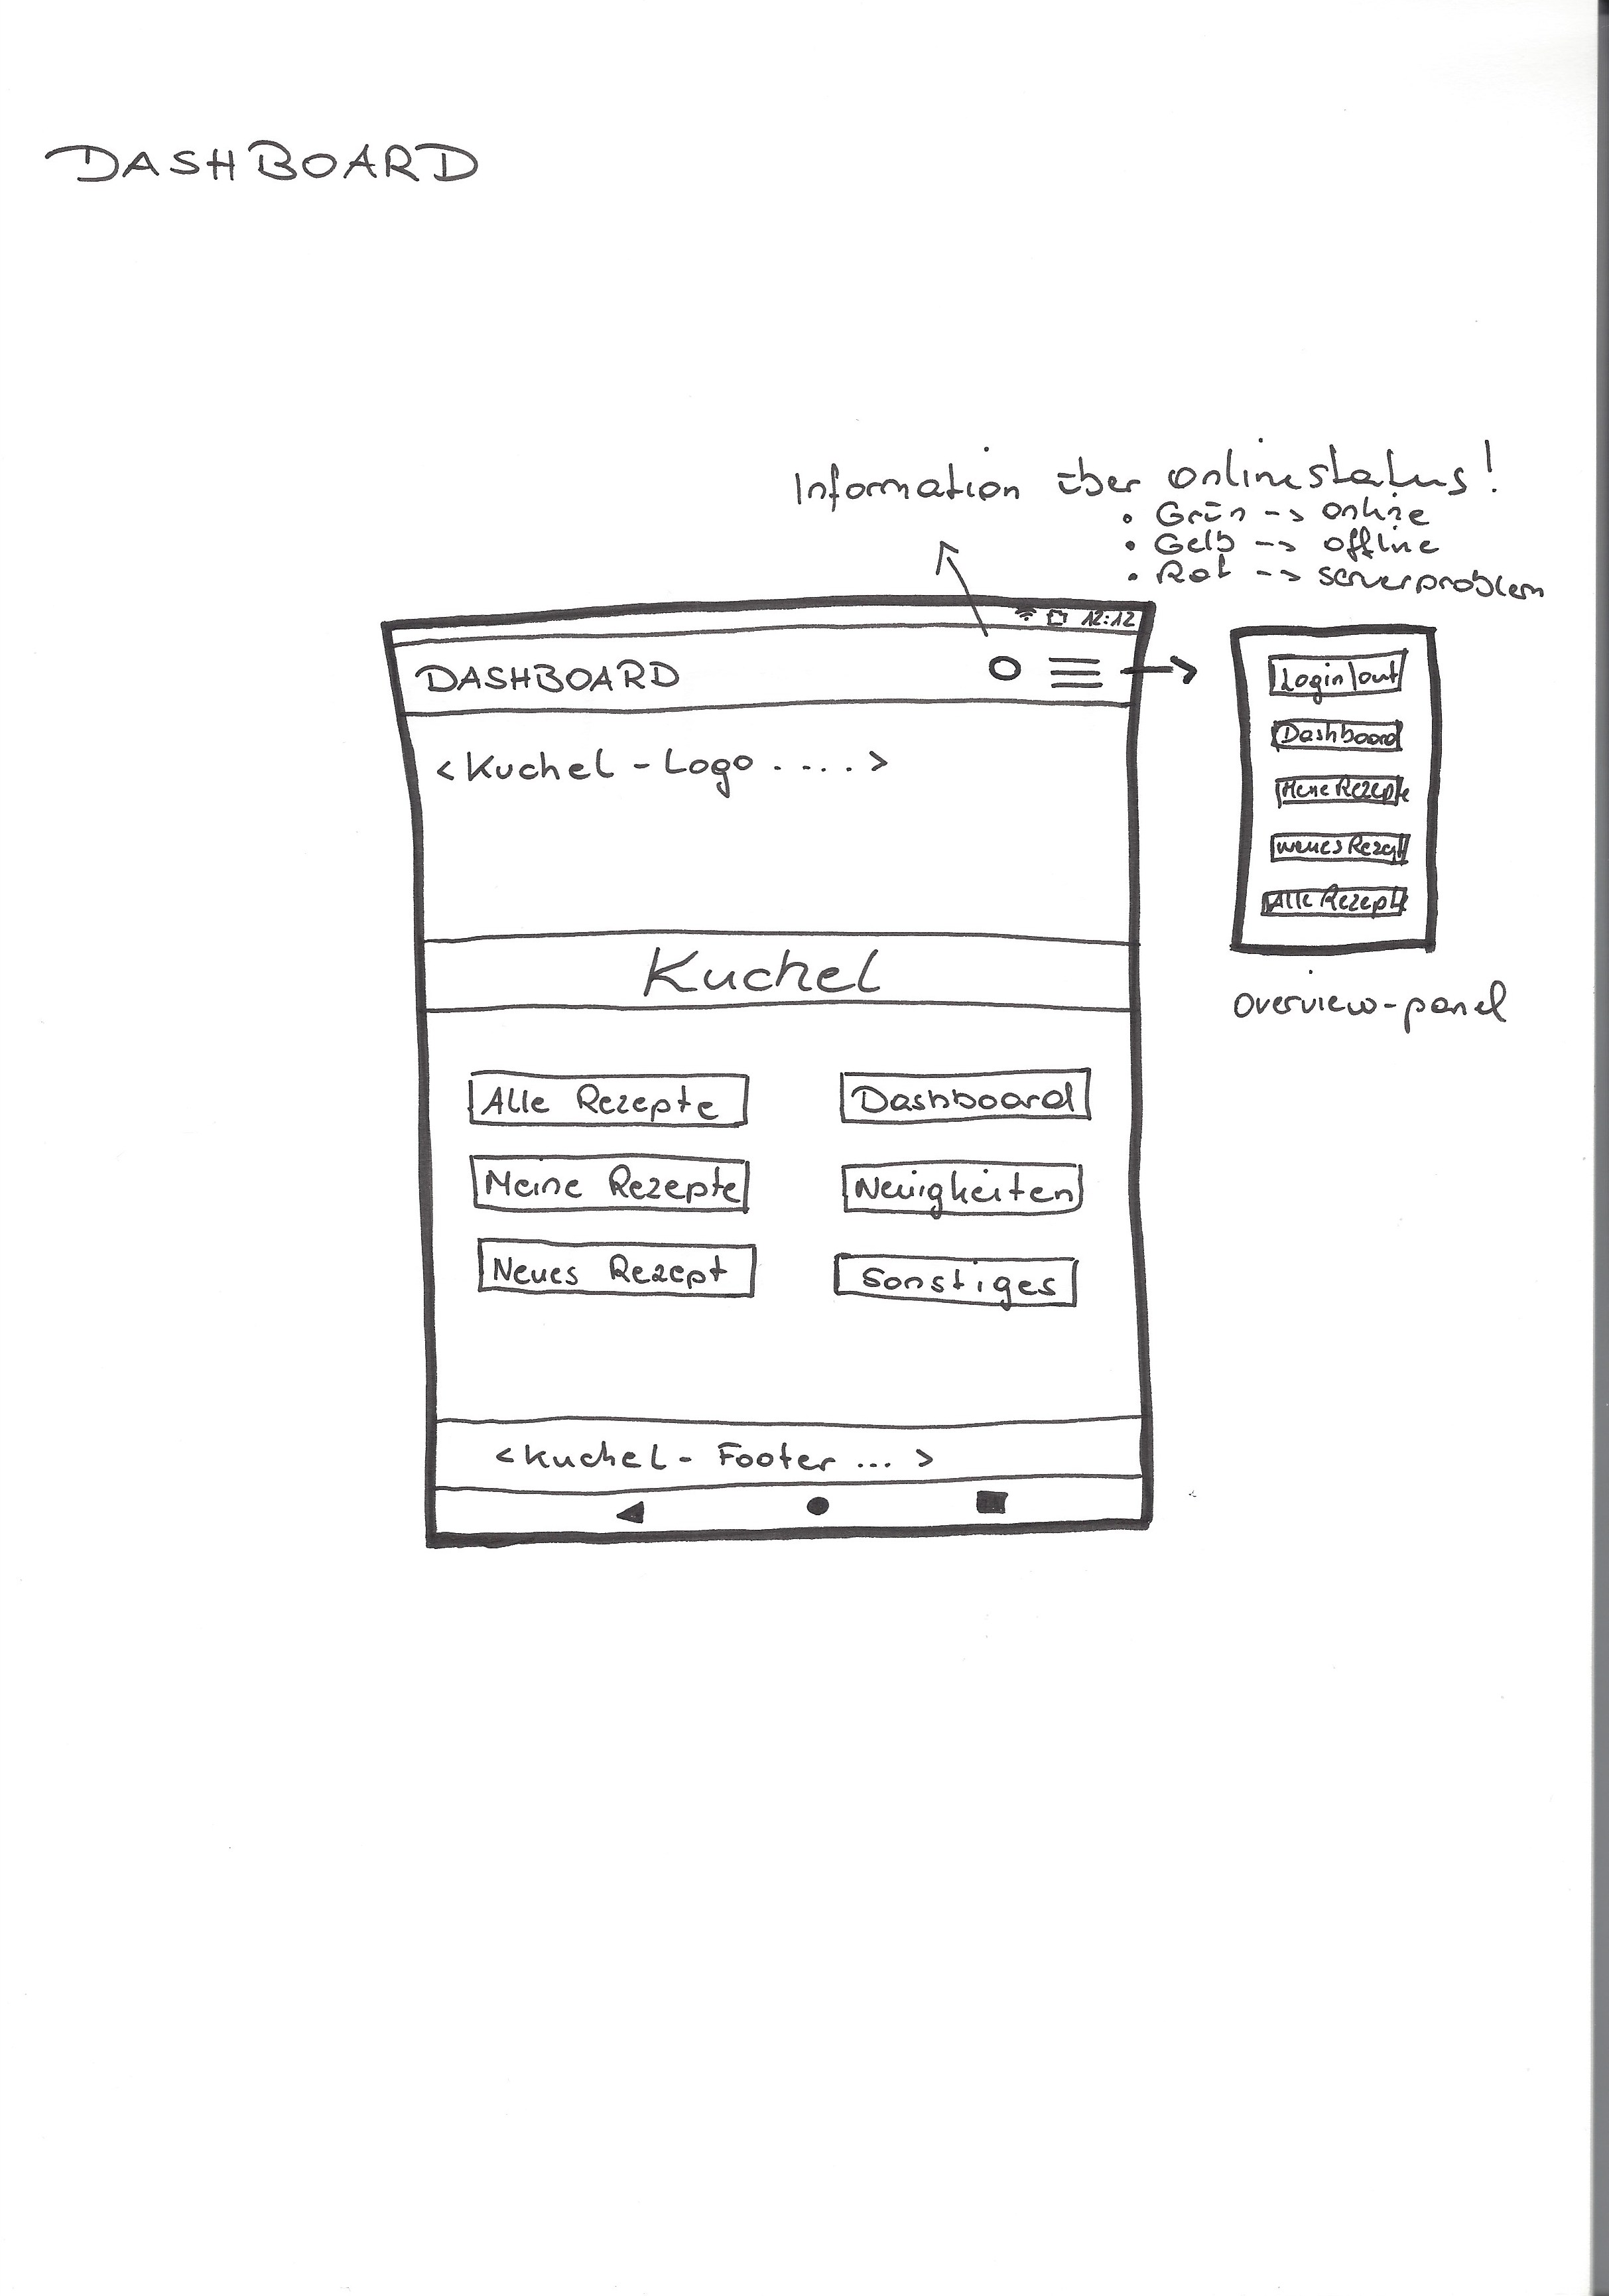 DASHBOARD
Information über onlinestatus!
• Grün --> online
• Gelb --> offline
• Rot --> serverproblem
12:12
DASHBOARD
<Kuchel-Logo ....>
Kuchel
Alle Rezepte
Dashboard
Meine Rezepte
Neuigkeiten
Neues Rezept
Sonstiges
<Kuchel-Footer ...>
Login/out
Dashboard
Meine Rezepte
Neues Rezept
Alle Rezepte
overview-panel